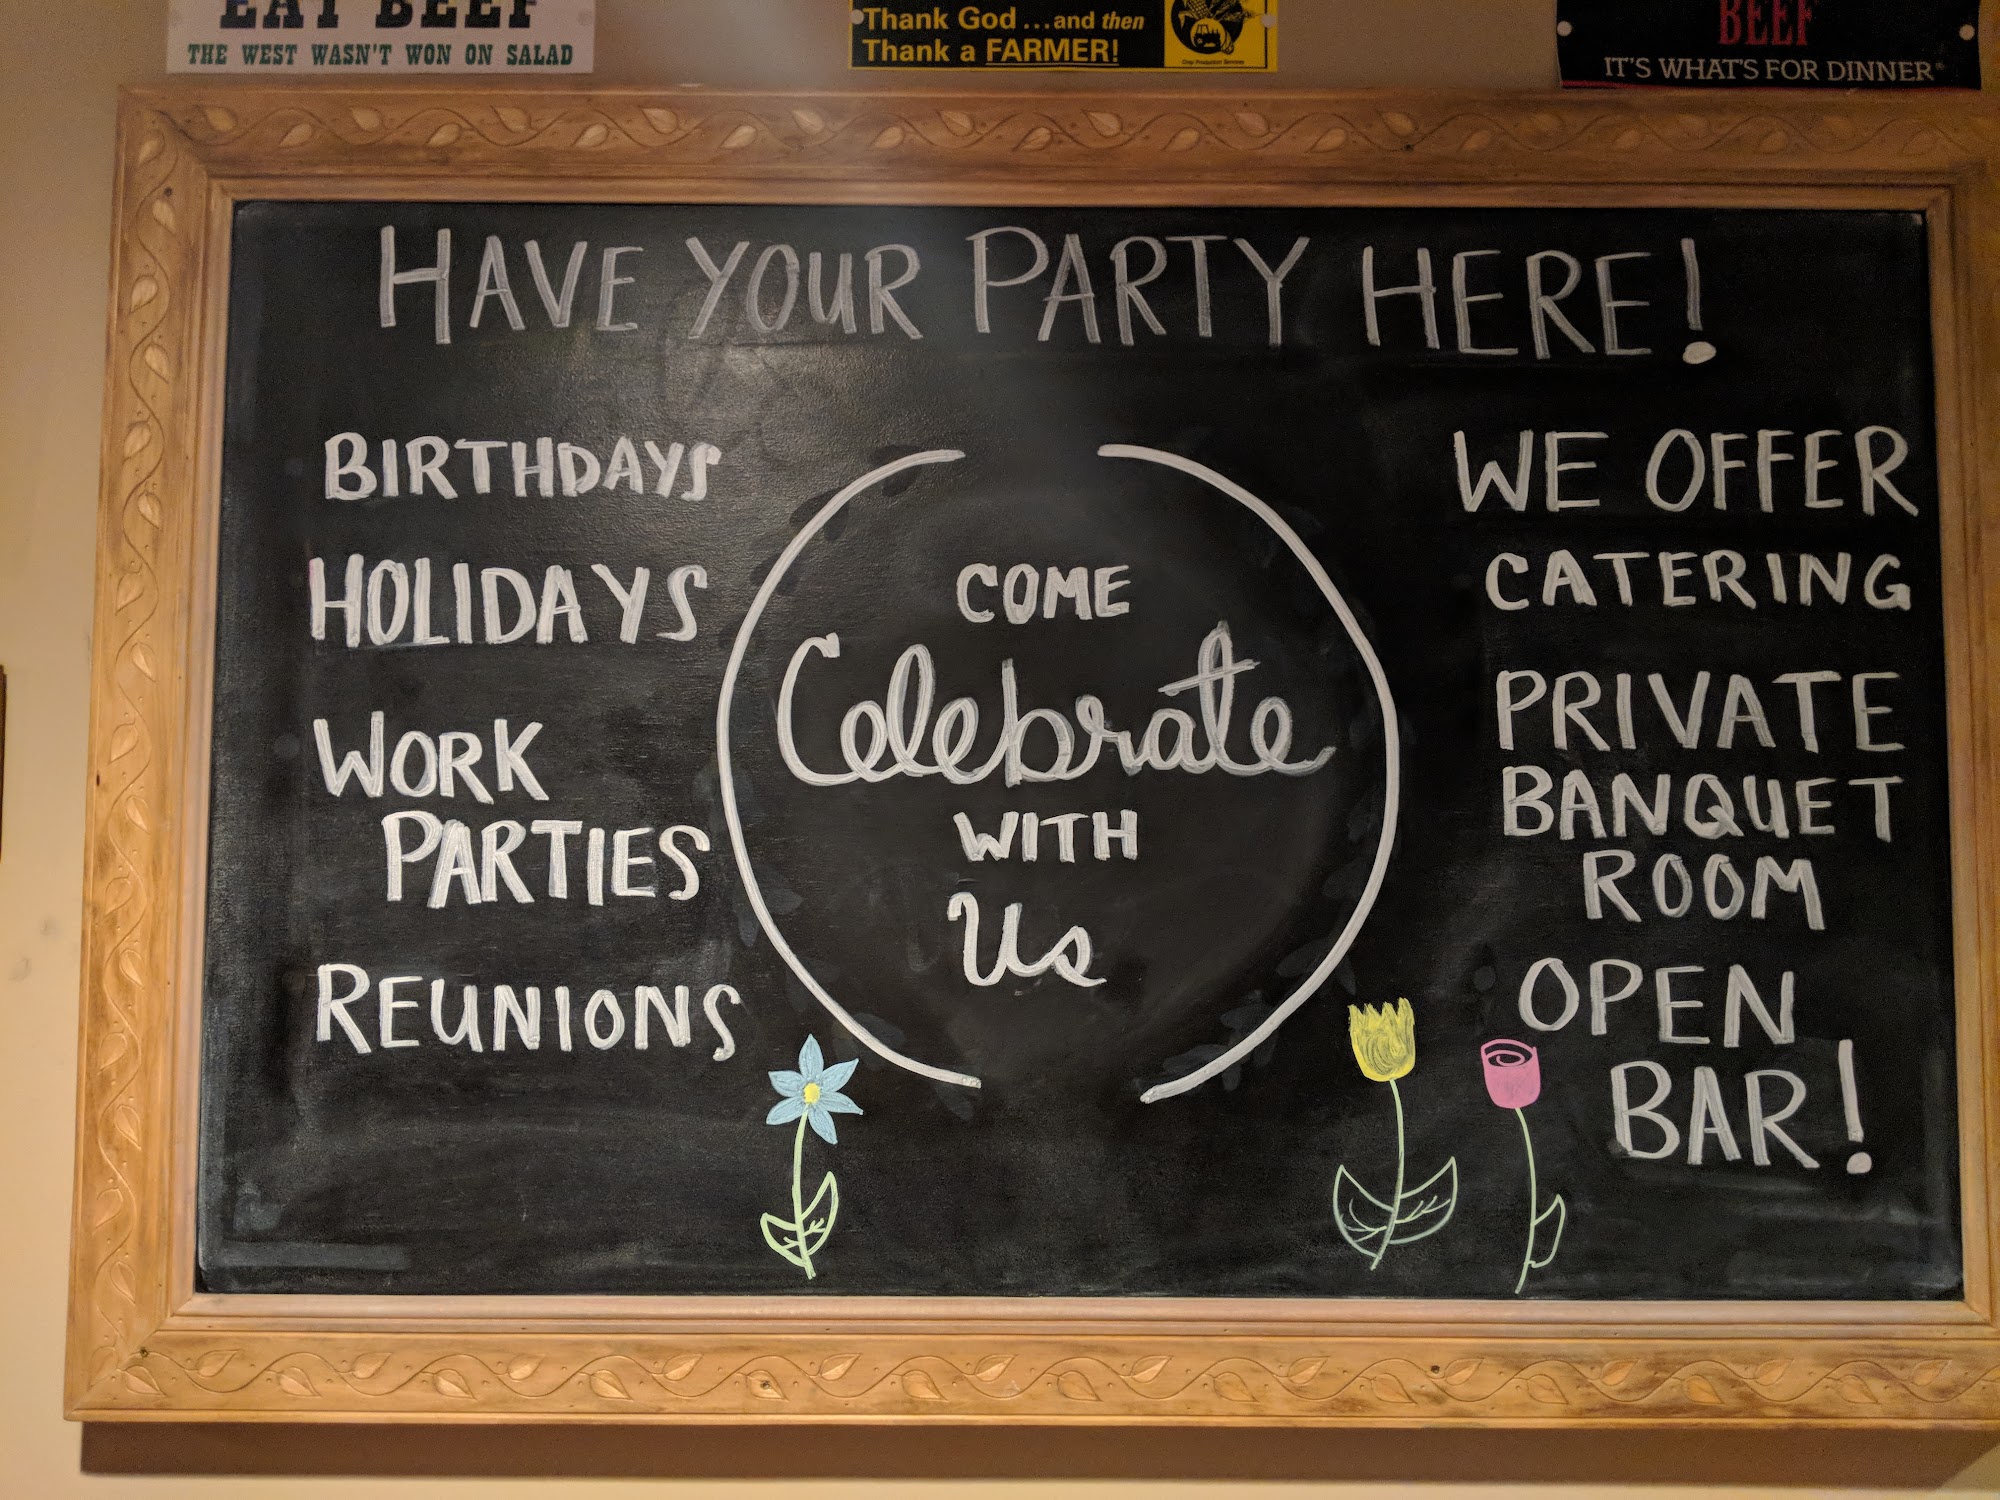 EAT BEEF
THE WEST WASN'T WON ON SALAD
Thank God ...and then
Thank a FARMER!
Crop Production Services
BEEF
IT'S WHAT'S FOR DINNER®
HAVE YOUR PARTY HERE!
BIRTHDAYS
HOLIDAYS
WORK
PARTIES
REUNIONS
COME
Celebrate
WITH
Us
WE OFFER
CATERING
PRIVATE
BANQUET
ROOM
OPEN
BAR!